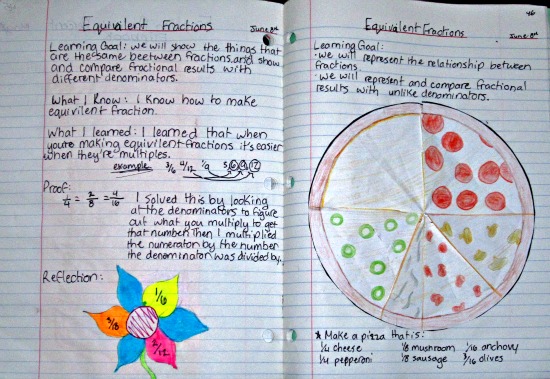 Equivalent Fractions
June 8th
Learning Goal: we will show the things that
are the same between fractions and show
and compare fractional results with
different denominators.
What I Know: I know how to make
equivalent fraction.
What I learned: I learned that when
you're making equivalent fractions it's easier
when they're multiples.
example 3/6 4/12 1/9 3 6 9 12
Proof:
1/4 = 2/8 = 4/16
I solved this by looking
at the denominators to figure
out what you multiply to get
that number. Then I multiplied
the numerator by the number
the denominator was divided by.
Reflection:
1/6
3/18
2/12
46
Equivalent Fractions
June 8th
Learning Goal:
· We will represent the relationship between
fractions.
· We will represent and compare fractional
results with unlike denominators.
* Make a pizza that is:
1/4 cheese 1/8 mushroom 1/16 anchovy
1/4 pepperoni 1/8 sausage 3/16 olives